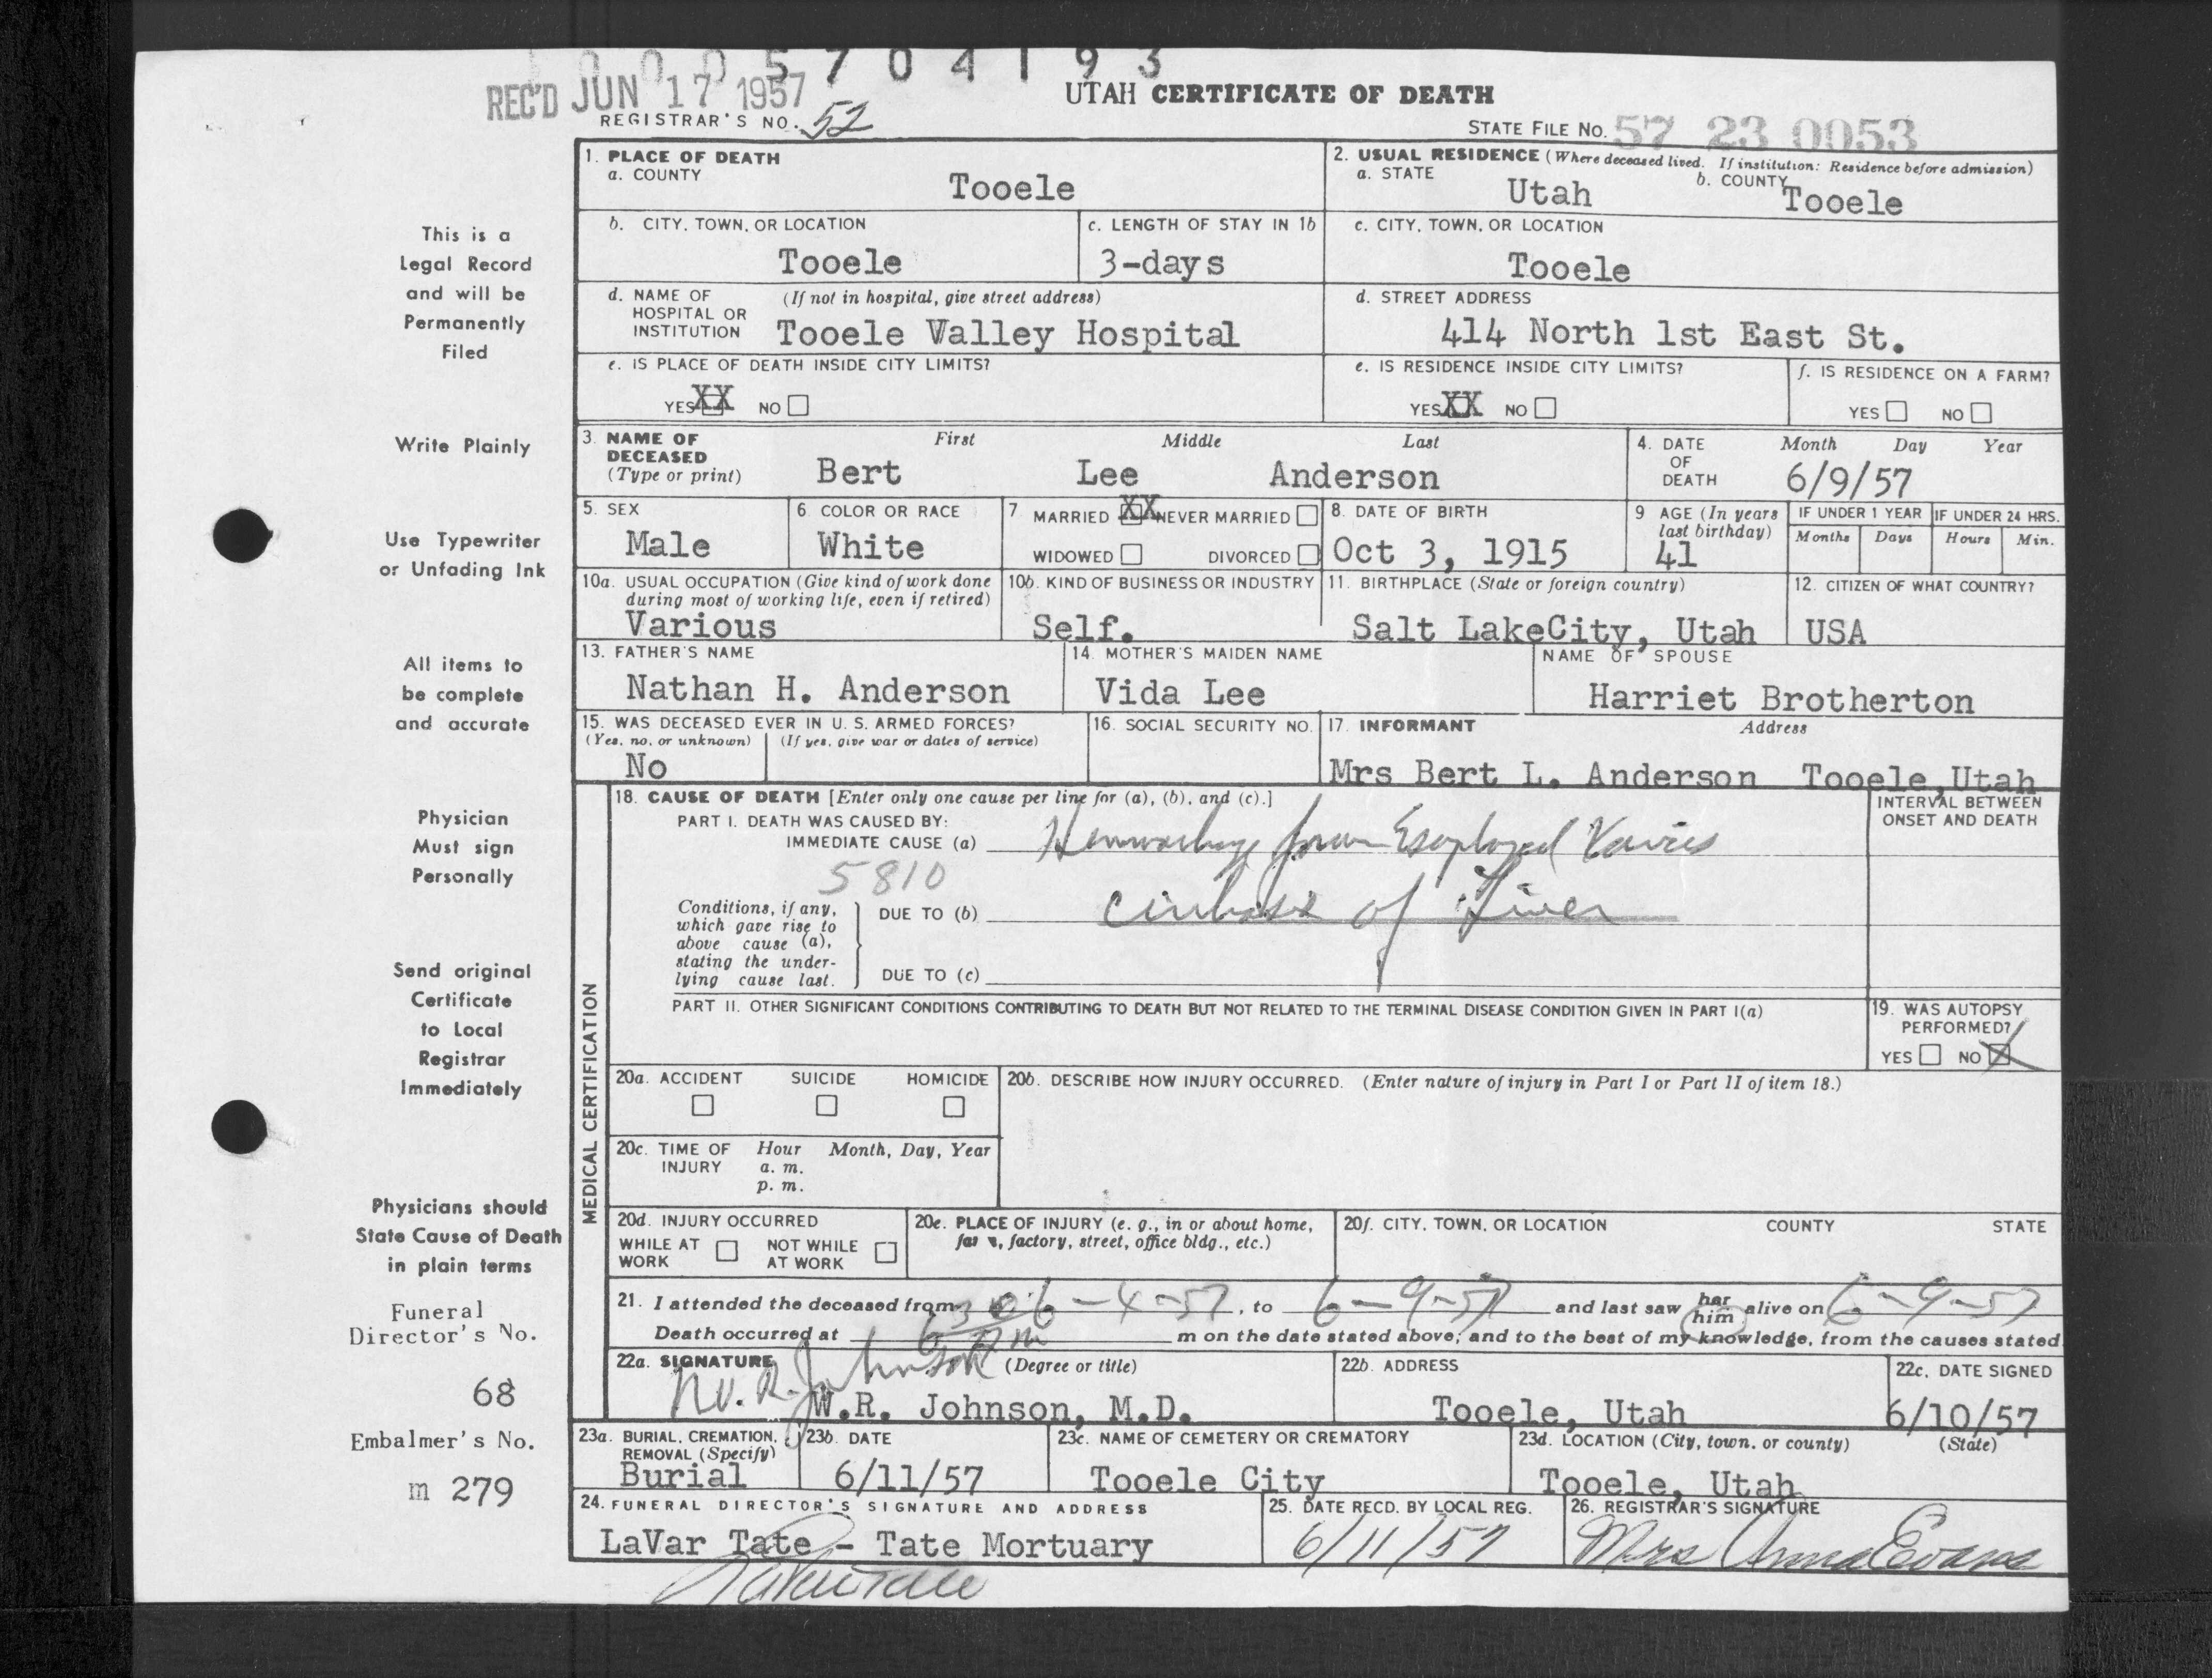 0 0 0 5 7 0 4 1 9 3
REC'D JUN 17 1957
UTAH CERTIFICATE OF DEATH
REGISTRAR'S NO. 52
STATE FILE NO. 57 23 0053
1. PLACE OF DEATH
a. COUNTY
Tooele
2. USUAL RESIDENCE (Where deceased lived. If institution: Residence before admission)
a. STATE
Utah
b. COUNTY
Tooele
b. CITY, TOWN, OR LOCATION
Tooele
c. LENGTH OF STAY IN 1b
3-days
c. CITY, TOWN, OR LOCATION
Tooele
d. NAME OF HOSPITAL OR INSTITUTION
(If not in hospital, give street address)
Tooele Valley Hospital
d. STREET ADDRESS
414 North 1st East St.
e. IS PLACE OF DEATH INSIDE CITY LIMITS?
YES XX NO
e. IS RESIDENCE INSIDE CITY LIMITS?
YES XX NO
f. IS RESIDENCE ON A FARM?
YES NO
3. NAME OF DECEASED
(Type or print)
First Middle Last
Bert Lee Anderson
4. DATE OF DEATH
Month Day Year
6/9/57
5. SEX
Male
6. COLOR OR RACE
White
7 MARRIED XX NEVER MARRIED
WIDOWED DIVORCED
8. DATE OF BIRTH
Oct 3, 1915
9 AGE (In years last birthday)
41
IF UNDER 1 YEAR
Months Days
IF UNDER 24 HRS.
Hours Min.
10a. USUAL OCCUPATION (Give kind of work done during most of working life, even if retired)
Various
10b. KIND OF BUSINESS OR INDUSTRY
Self.
11. BIRTHPLACE (State or foreign country)
Salt LakeCity, Utah
12. CITIZEN OF WHAT COUNTRY?
USA
13. FATHER'S NAME
Nathan H. Anderson
14. MOTHER'S MAIDEN NAME
Vida Lee
NAME OF SPOUSE
Harriet Brotherton
15. WAS DECEASED EVER IN U. S. ARMED FORCES?
(Yes, no, or unknown) (If yes, give war or dates of service)
No
16. SOCIAL SECURITY NO.
17. INFORMANT Address
Mrs Bert L. Anderson Tooele, Utah
MEDICAL CERTIFICATION
18. CAUSE OF DEATH [Enter only one cause per line for (a), (b), and (c).]
INTERVAL BETWEEN ONSET AND DEATH
PART I. DEATH WAS CAUSED BY:
IMMEDIATE CAUSE (a) from
5810
Conditions, if any, which gave rise to above cause (a), stating the underlying cause last.
DUE TO (b) of Liver
DUE TO (c)
PART II. OTHER SIGNIFICANT CONDITIONS CONTRIBUTING TO DEATH BUT NOT RELATED TO THE TERMINAL DISEASE CONDITION GIVEN IN PART I(a)
19. WAS AUTOPSY PERFORMED?
YES NO X
20a. ACCIDENT SUICIDE HOMICIDE
20b. DESCRIBE HOW INJURY OCCURRED. (Enter nature of injury in Part I or Part II of item 18.)
20c. TIME OF INJURY
Hour Month, Day, Year
a. m.
p. m.
20d. INJURY OCCURRED
WHILE AT WORK NOT WHILE AT WORK
20e. PLACE OF INJURY (e. g., in or about home, farm, factory, street, office bldg., etc.)
20f. CITY, TOWN, OR LOCATION COUNTY STATE
21. I attended the deceased from 6-4-57, to 6-9-57 and last saw her him alive on 6-9-57
Death occurred at 6 30 PM m on the date stated above; and to the best of my knowledge, from the causes stated
22a. SIGNATURE (Degree or title)
W. R. Johnson
W.R. Johnson, M.D.
22b. ADDRESS
Tooele, Utah
22c. DATE SIGNED
6/10/57
23a. BURIAL, CREMATION, REMOVAL (Specify)
Burial
23b. DATE
6/11/57
23c. NAME OF CEMETERY OR CREMATORY
Tooele City
23d. LOCATION (City, town, or county) (State)
Tooele, Utah
24. FUNERAL DIRECTOR'S SIGNATURE AND ADDRESS
LaVar Tate - Tate Mortuary
LaVar Tate
25. DATE RECD. BY LOCAL REG.
6/11/57
26. REGISTRAR'S SIGNATURE
Mrs Anna Evans
This is a
Legal Record
and will be
Permanently
Filed
Write Plainly
Use Typewriter
or Unfading Ink
All items to
be complete
and accurate
Physician
Must sign
Personally
Send original
Certificate
to Local
Registrar
Immediately
Physicians should
State Cause of Death
in plain terms
Funeral
Director's No.
68
Embalmer's No.
m 279